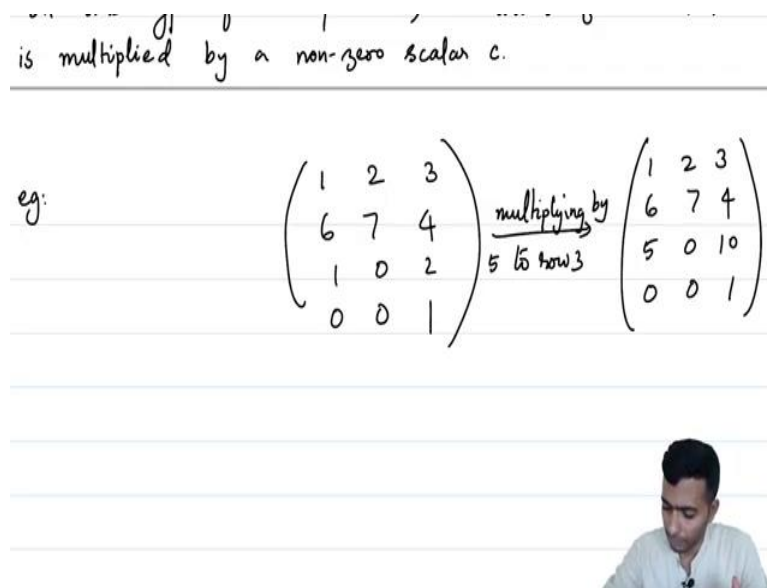 is multiplied by a non-zero scalar c.
eg:
1 2 3
6 7 4
1 0 2
0 0 1
multiplying by
5 to row 3
1 2 3
6 7 4
5 0 10
0 0 1